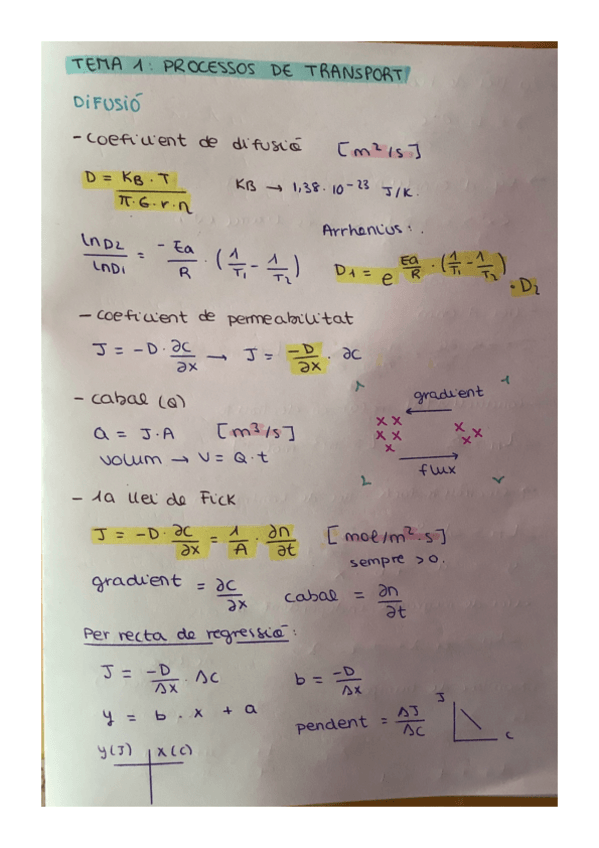 TEMA 1: PROCESSOS DE TRANSPORT
DIFUSIÓ
- coeficient de difusió [m²/s]
D = KB · T / π · 6 · r · η KB → 1,38 · 10⁻²³ J/K.
Arrhenius: .
ln D2 / ln D1 = - Ea / R · (1/T1 - 1/T2) D1 = e^(Ea/R · (1/T1 - 1/T2)) · D2
- coeficient de permeabilitat
J = -D · ∂c/∂x → J = -D/∂x · ∂c
- cabal (Q)
gradient
Q = J · A [m³/s]
volum → V = Q · t
flux
- 1a llei de Fick
J = -D · ∂c/∂x = 1/A · ∂n/∂t [mol/m² · s]
sempre > 0.
gradient = ∂c/∂x cabal = ∂n/∂t
Per recta de regressió:
J = -D/Δx · Δc b = -D/Δx
y = b · x + a pendent = ΔJ/Δc
J
c
y(J) x(c)